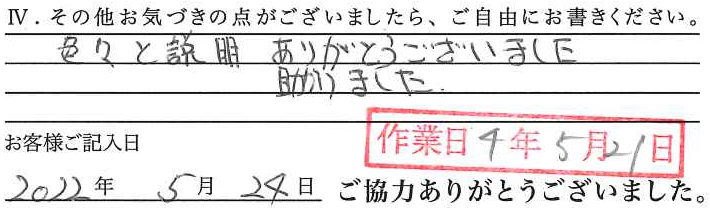 Ⅳ．その他お気づきの点がございましたら、ご自由にお書きください。
色々と説明 ありがとうございました
助かりました.
お客様ご記入日
作業日 4年 5月21日
2022年 5月 24日 ご協力ありがとうございました。